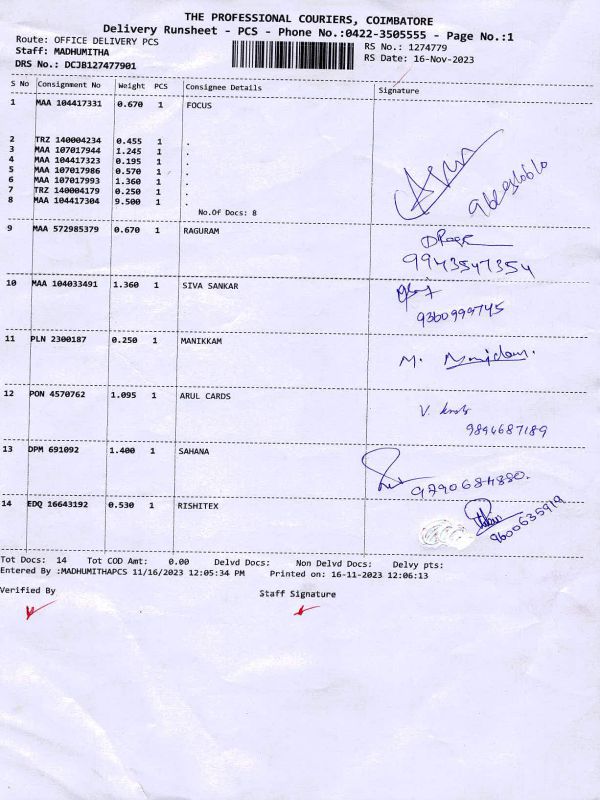 THE PROFESSIONAL COURIERS, COIMBATORE
Delivery Runsheet - PCS - Phone No.:0422-3505555 - Page No.:1
Route: OFFICE DELIVERY PCS
RS No.: 1274779
Staff: MADHUMITHA
RS Date: 16-Nov-2023
DRS No.: DCJB127477901
S No Consignment No Weight PCS Consignee Details Signature
1 MAA 104417331 0.670 1 FOCUS
2 TRZ 140004234 0.455 1 .
3 MAA 107017944 1.245 1 .
4 MAA 104417323 0.195 1 .
5 MAA 107017986 0.570 1 .
6 MAA 107017993 1.360 1 .
7 TRZ 140004179 0.250 1 .
8 MAA 104417304 9.500 1 .
No.Of Docs: 8
9 MAA 572985379 0.670 1 RAGURAM
9943547354
10 MAA 104033491 1.360 1 SIVA SANKAR
9360999745
11 PLN 2300187 0.250 1 MANIKKAM
M.
12 PON 4570762 1.095 1 ARUL CARDS
V.
9894687189
13 DPM 691092 1.400 1 SAHANA
9790684880.
14 EDQ 16643192 0.530 1 RISHITEX
9600635919
Tot Docs: 14 Tot COD Amt: 0.00 Delvd Docs: Non Delvd Docs: Delvy pts:
Entered By :MADHUMITHAPCS 11/16/2023 12:05:34 PM Printed on: 16-11-2023 12:06:13
Verified By
Staff Signature